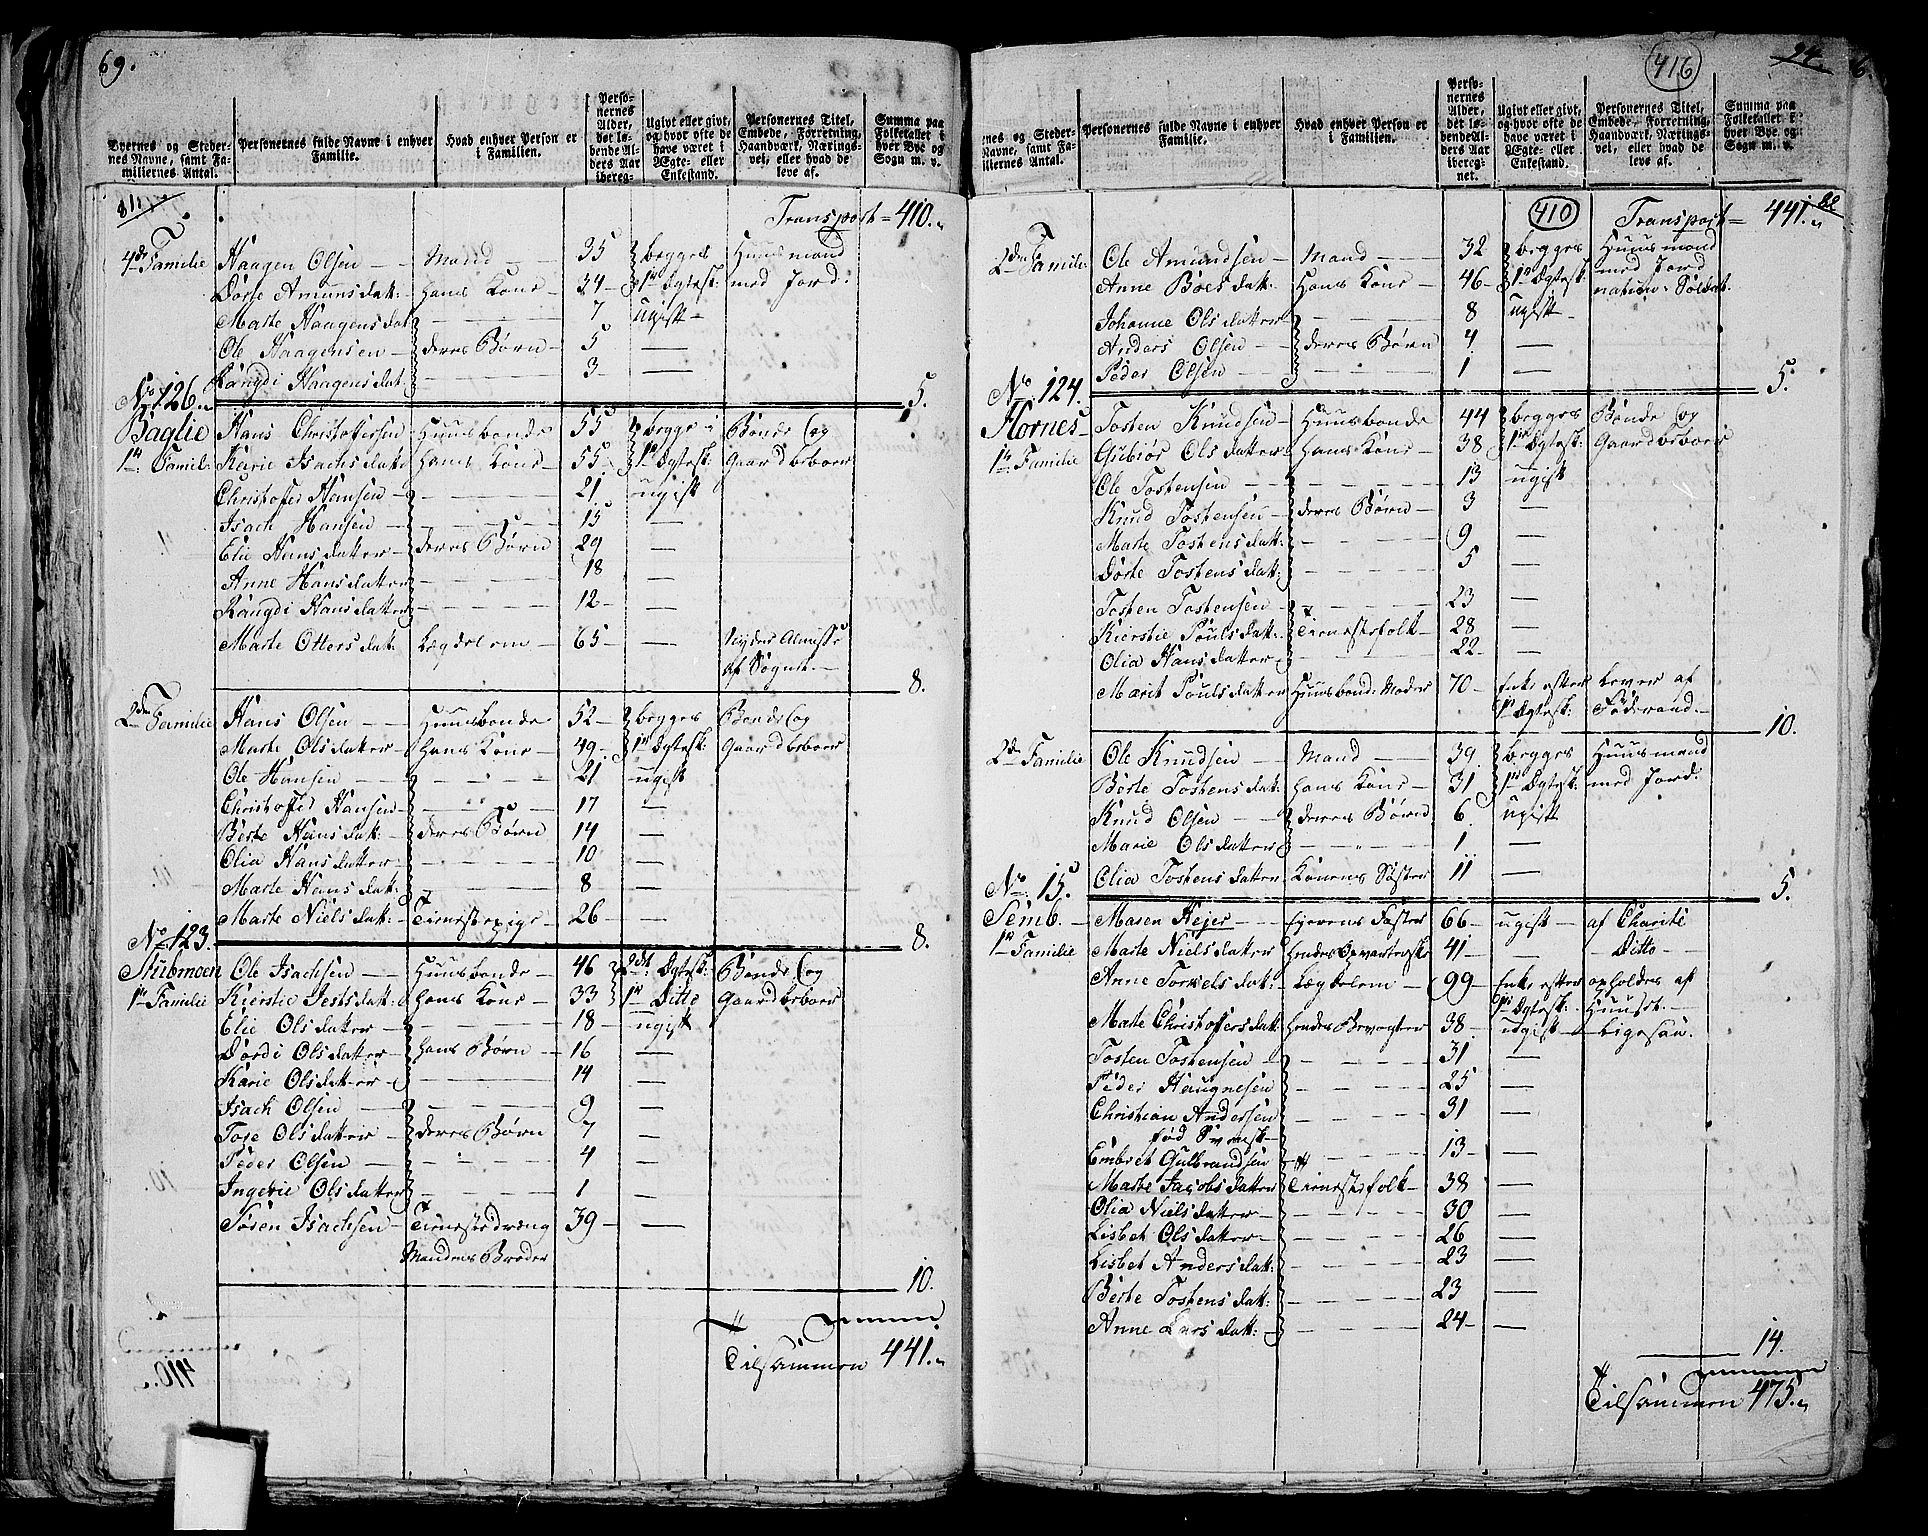 69.
Byernes og Stedernes Navne, samt Familiernes Antal.
Personernes fulde Navne i enhver Familie.
Hvad enhver Person er i Familien.
Personernes Alder, det løbende Alders Aar iberegnet.
Ugivt eller givt, og hvor ofte de have været i Ægte- eller Enkestand.
Personernes Titel, Embede, Forretning, Haandværk, Næringsvei, eller hvad de leve af.
Summa paa Folketallet i hver Bye og Sogn m. v.
Transport = 410.
4de Familie Haagen Olsen — Mand — 35 begges Huusmand
Dorte Amunsdatt: hans Kone — 34 — 1te Ægtesk: med Jord:
Marte Haagensdat — 7 ugift —
Ole Haagensen — deres Børn — 5 —
Rangdi Haagensdat. — 3 —
5.
No 126.
Baglie Hans Christoffersen Huusbonde 55 begge i Bonde og
1te Famil. Karie Isachsdatt. hans Kone — 55. 1te Ægtesk: Gaardbeboer
Christoffer Hansen — 21 ugift
Isach Hansen — 15 —
Elie Hansdatter — deres Børn 29 —
Anne Hansdatter — 18 —
Rangdi Hansdatter — 12 —
Marte Ottersdatt: Lægdelem — 65 — — Nyder Almisse
af Sognet. —
8.
2den Familie Hans Olsen — Huusbonde 52 — begges Bonde og
Marte Olsdatter — hans Kone — 49 — 1te Ægtesk: Gaardbeboer
Ole Hansen — 21 ugift
Christoffer Hansen — 17 —
Berte Hansdatt: — deres Børn 14 —
Olia Hansdatter — 10 —
Marte Hansdatt: — 8 —
Marte Nielsdatt: — Tienestepige — 26 — —
8.
No 123.
Stubmoen Ole Isachsen — Huusbonde — 46 2det Ægtesk: Bonde og
1te Familie Kierstie Jestsdatt: hans Kone — 33 1te Ditto Gaardbeboer
Elie Olsdatter — 18 — ugift
Dordi Olsdatter — hans Børn — 16 —
Karie Olsdatter — 14 —
Isach Olsen — 9 —
Tore Olsdatter — deres Børn 7 —
Peder Olsen — 4 —
Ingerie Olsdatter — 1 —
Søren Isachsen — Tienestedreng 39 — —
Mandens Broder
10.
Tilsammen 441.
416
94
nes og Stedernes Navne, samt Familiernes Antal.
Personernes fulde Navne i enhver Familie.
Hvad enhver Person er i Familien.
Personernes Alder, det løbende Alders Aar iberegnet.
Ugivt eller givt, og hvor ofte de have været i Ægte- eller Enkestand.
Personernes Titel, Embede, Forretning, Haandværk, Næringsvei, eller hvad de leve af.
Summa paa Folketallet i hver Bye og Sogn m. v.
410 Transport = 441.
2den Famili Ole Amundsen — Mand — 32 begges Huusmand
Anne Boesdatt: hans Kone — 46 — 1te Ægtesk: med Jord
Johanne Olsdatter — 8 ugift — nation: Soldat.
Anders Olsen — deres Børn 4 —
Peder Olsen — 1 —
5.
No 124.
Hornes — Tosten Knudsen — Huusbonde 44 begges Bonde og
1te Familie Gubiør Olsdatter hans Kone — 38 1te Ægtesk: Gaardbeboer
Ole Tostensen — 13 ugift
Knud Tostensen — deres Børn — 3 —
Marte Tostensdatt: — 9 —
Dorte Tostensdatt: — 5 —
Tosten Tostensen — 23 —
Kierstie Poulsdatt: Tienestefolk — 28 —
Olia Hansdatter — 22 —
Marit Poulsdatter Huusbond: Moder 70 — Enke efter lever af
1te Ægtesk: Føderaad. —
10.
2den Familie Ole Knudsen — Mand — 39. begges Huusmand
Berte Tostensdatt hans Kone — 31 1te Ægtesk: med Jord:
Knud Olsen — deres Børn 6 ugift
Marie Olsdatter — 1 —
Olia Tostensdatter Konens Søster 11 —
5.
No 15.
Semb. — Maren Hejer — Ejerens Faster 66 — ugift — af Charité
1te Familie Marte Nielsdatter hendes Opvarterske 41 — — Ditto —
Anne Torkelsdatt: Lægdelem — 99 — Enke efter opholdes af
1te Ægtesk: Huusk. —
Marte Christoffersdatt: hendes Bevogter 38 — ugift — ligesaa.
Tosten Tostensen — 31 —
Peder Haugnesen — 25 —
Christian Andersen — 31 —
fød Svensk —
Embret Gulbrandsen — 13 —
Marte Jacobsdatter Tienestefolk — 38 —
Olia Nielsdatter — 30 —
Lisbet Olsdatter — 26 —
Lisbet Andersdatt: — 23 —
Berte Tostensdatt: — 23 —
Anne Larsdatt: — 24 —
14.
Tilsammen 475.